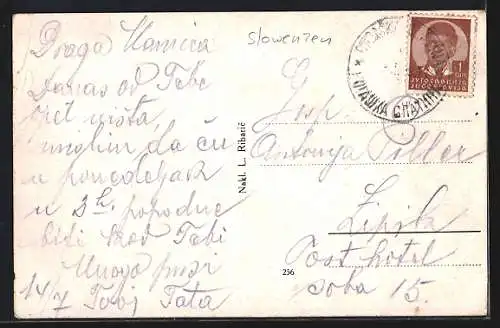 Draga Mamica
Danas od Tebe
opet ništa,
mislim da ću
u ponedeljak
u 3h popodne
biti kod Tebi
Mnogo pusi
14/7 Tvoj Tata
Slowenien
Nakl. L. Ribarić
256
Gosp.
Antonija Piller
Lipik
Post hotel
soba 15.
1
ЈУГОСЛАВИЈА
JUGOSLAVIJA